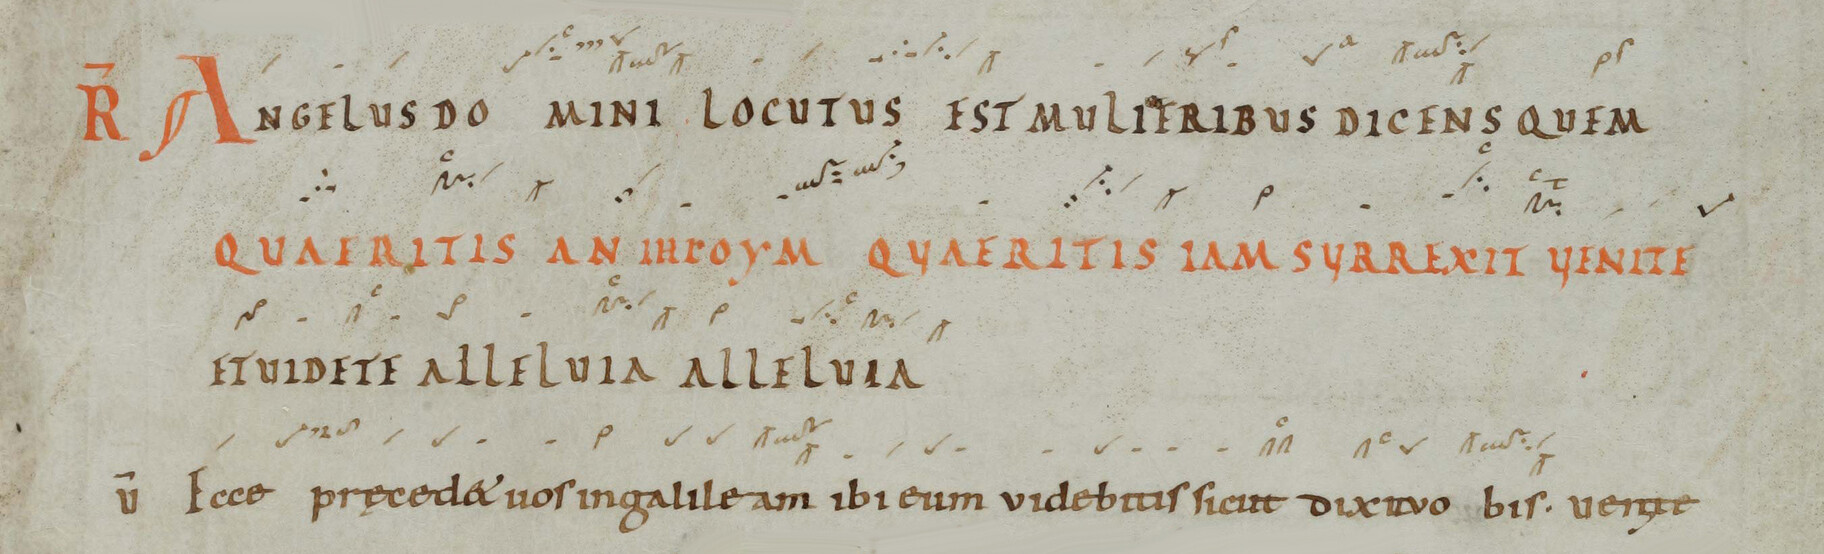 R̄ ANGELUS DO MINI LOCUTUS EST MULIERIBUS DICENS QUEM
QUAERITIS AN IHTOYM QYAERITIS IAM SYRREXIT YENITE
ET UIDETE ALLELUIA ALLELUIA
v̄ Ecce pręced& uos in galileam ibi eum videbitis sicut dixit vo bis. venite